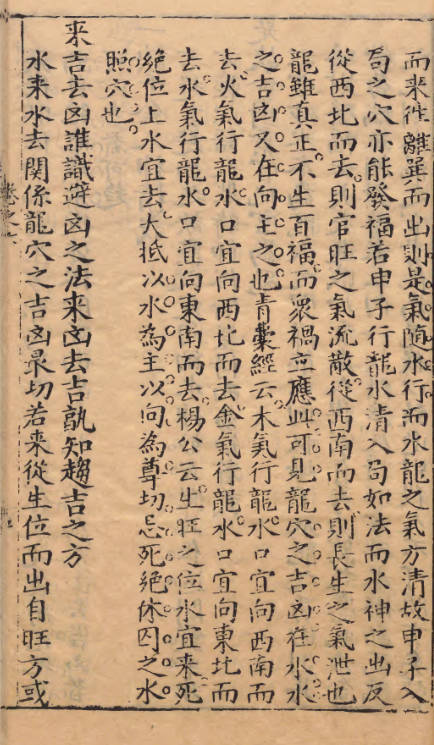 而来從離巽而出則是氣隨水行而水龍之氣方清故申子入
局之穴亦能發福若申子行龍水清入局如法而水神之出反
從西北而去則官旺之氣流散從西南而去則長生之氣泄也
龍雖真正不生百福而眾禍立應此可見龍穴之吉凶在水水
之吉凶又在向主之也青囊經云木氣行龍水口宜向西南而
去火氣行龍水口宜向西北而去金氣行龍水口宜向東北而
去水氣行龍水口宜向東南而去楊公云生旺之位水宜来死
絕位上水宜去大抵以水為主以向為尊切忌死絕休囚之水
照穴也
来吉去凶誰識避凶之法来凶去吉孰知趨吉之方
水来水去關係龍穴之吉凶最切若来從生位而出自旺方或